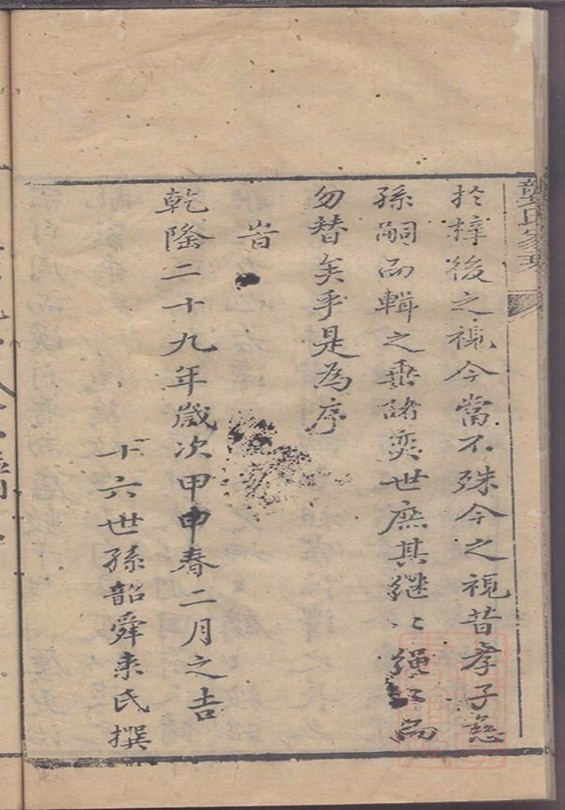 於梓後之視今當不殊今之視昔孝子慈
孫嗣而輯之垂諸奕世庶其繼〻繩〻而
勿替矣乎是為序
旹
乾隆二十九年歲次甲申春二月之吉
十六世孫韶舜來氏撰